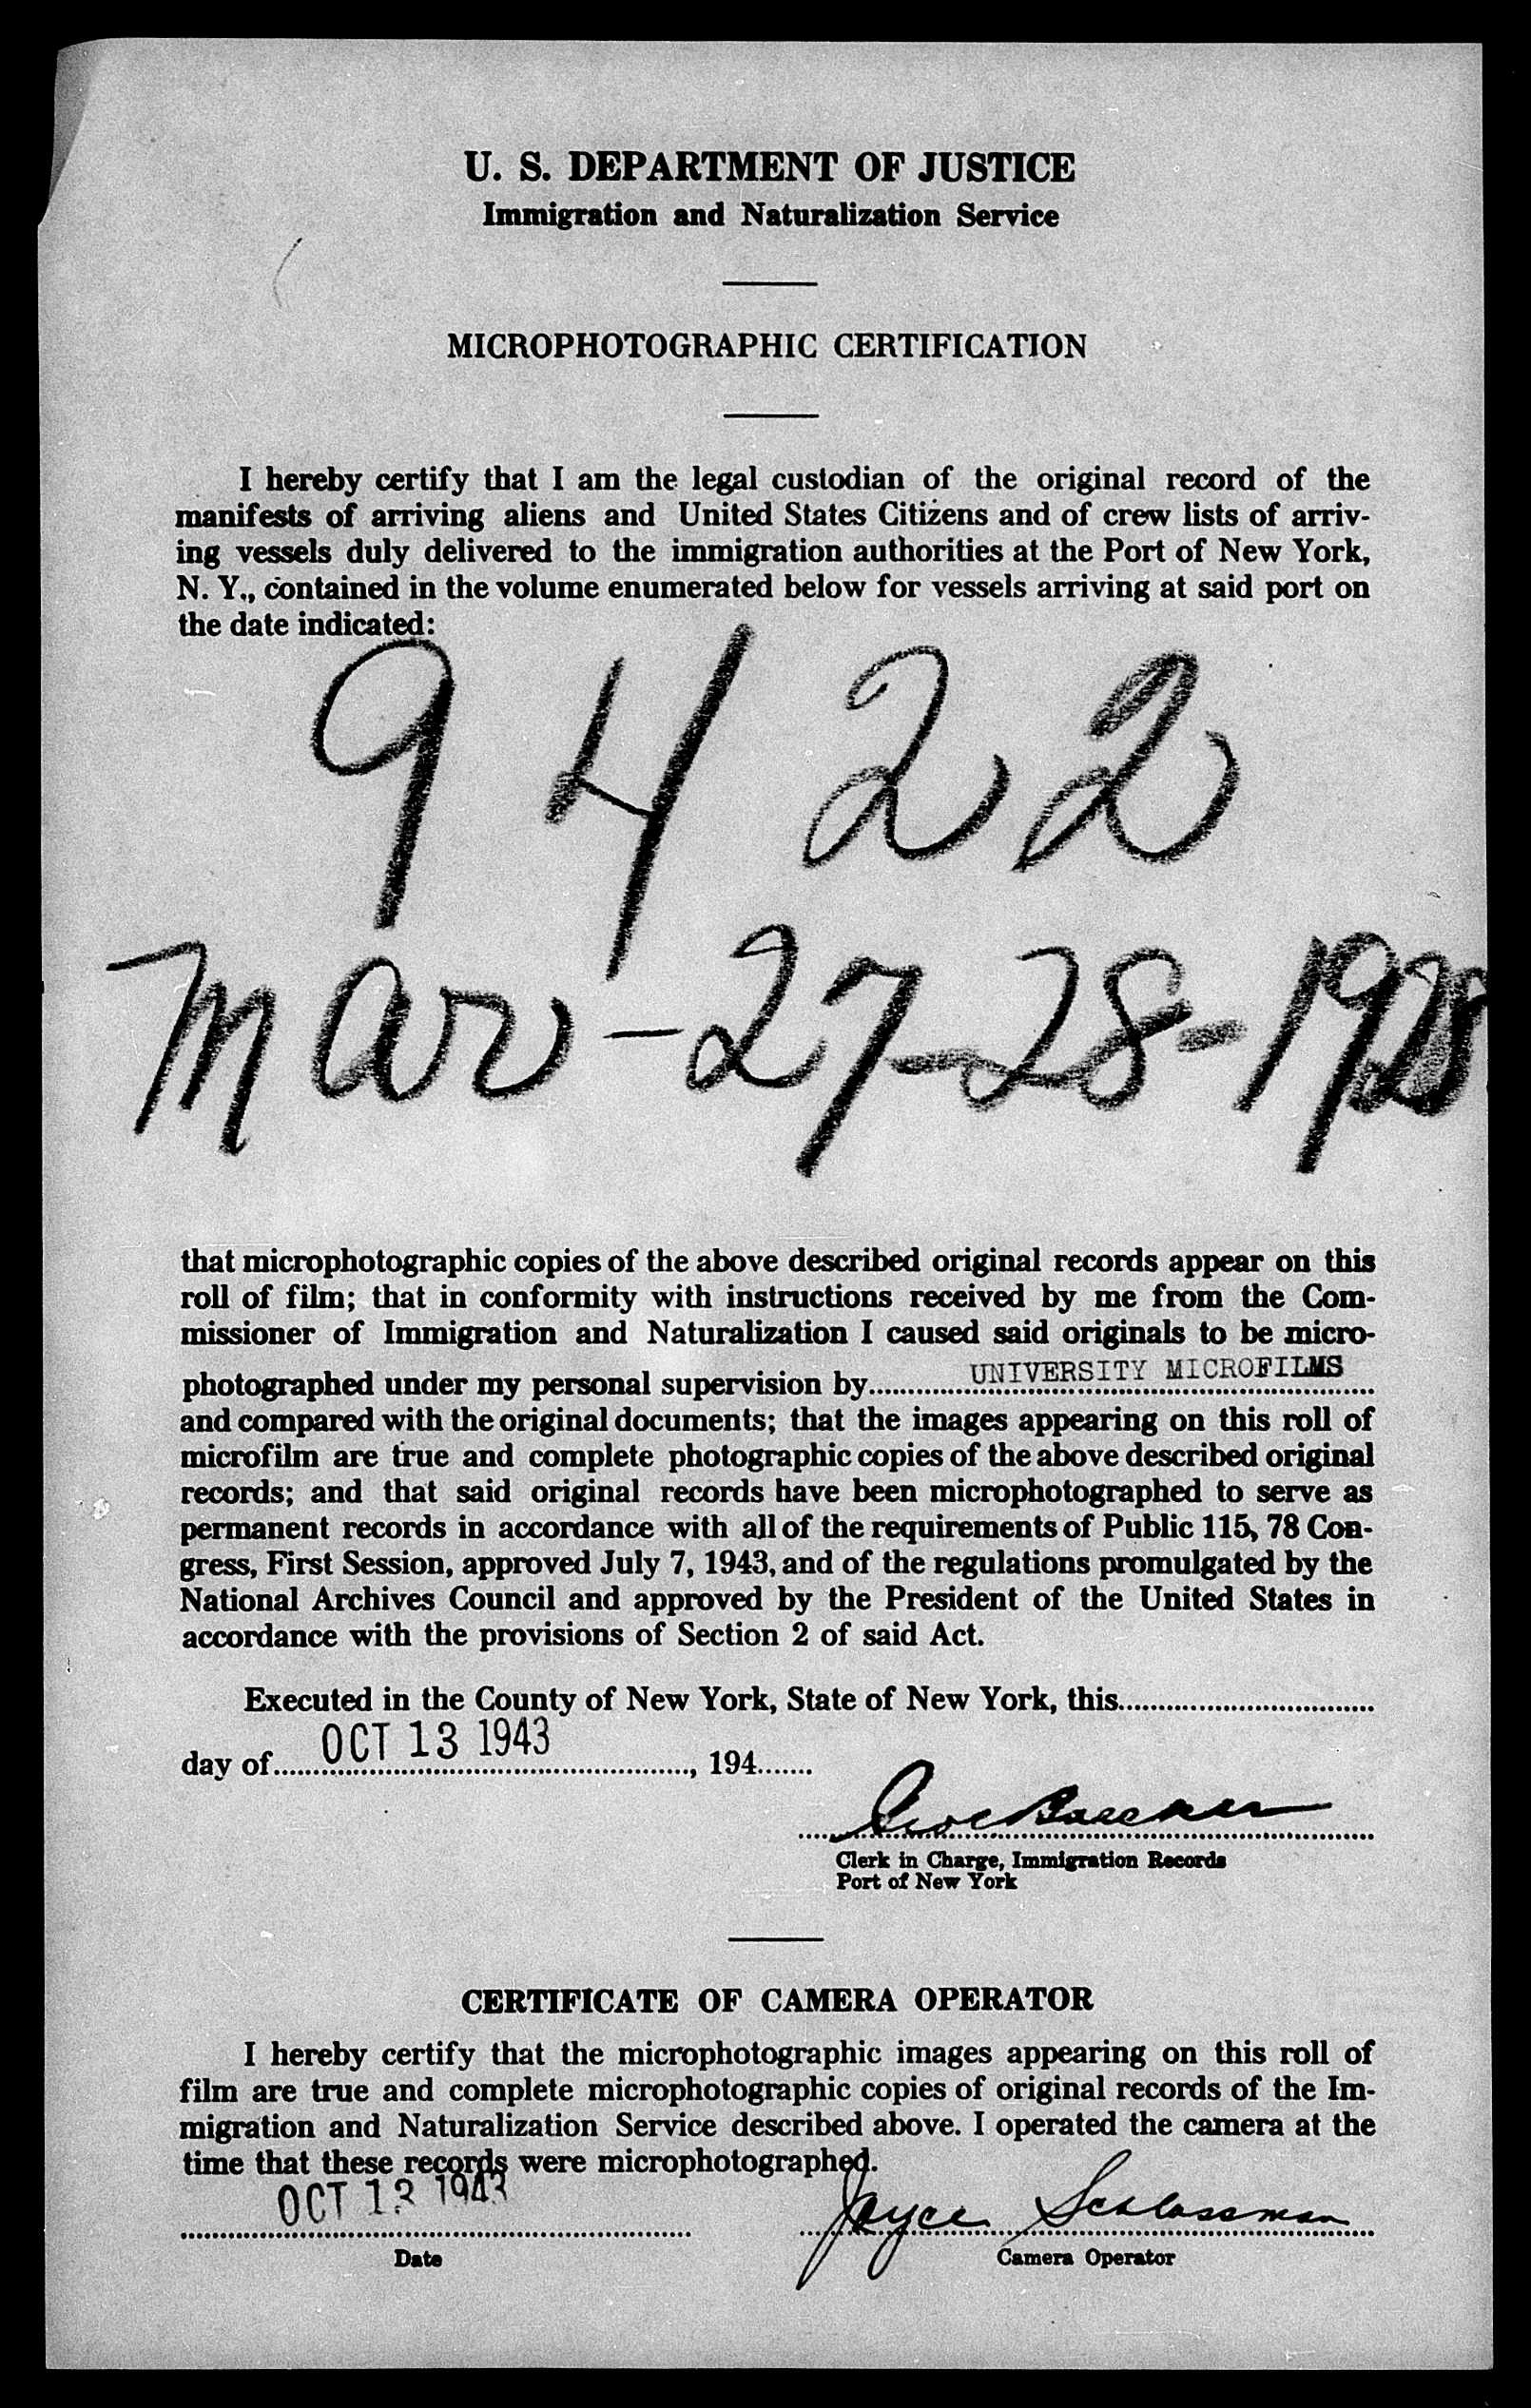 U. S. DEPARTMENT OF JUSTICE
Immigration and Naturalization Service
MICROPHOTOGRAPHIC CERTIFICATION
I hereby certify that I am the legal custodian of the original record of the
manifests of arriving aliens and United States Citizens and of crew lists of arriv-
ing vessels duly delivered to the immigration authorities at the Port of New York,
N. Y., contained in the volume enumerated below for vessels arriving at said port on
the date indicated:
9422
Mar - 27-28-1928
that microphotographic copies of the above described original records appear on this
roll of film; that in conformity with instructions received by me from the Com-
missioner of Immigration and Naturalization I caused said originals to be micro-
photographed under my personal supervision by UNIVERSITY MICROFILMS
and compared with the original documents; that the images appearing on this roll of
microfilm are true and complete photographic copies of the above described original
records; and that said original records have been microphotographed to serve as
permanent records in accordance with all of the requirements of Public 115, 78 Con-
gress, First Session, approved July 7, 1943, and of the regulations promulgated by the
National Archives Council and approved by the President of the United States in
accordance with the provisions of Section 2 of said Act.
Executed in the County of New York, State of New York, this
day of OCT 13 1943, 194
Clerk in Charge, Immigration Records
Port of New York
CERTIFICATE OF CAMERA OPERATOR
I hereby certify that the microphotographic images appearing on this roll of
film are true and complete microphotographic copies of original records of the Im-
migration and Naturalization Service described above. I operated the camera at the
time that these records were microphotographed.
OCT 13 1943 Joyce Schlossman
Date Camera Operator